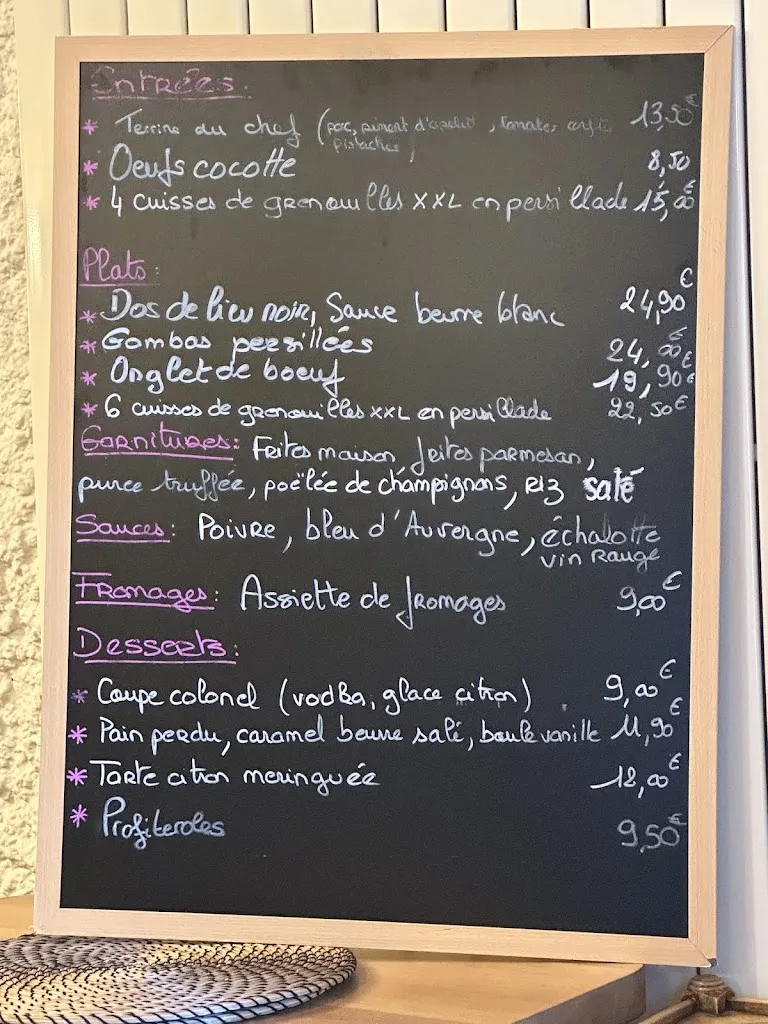 Entrées:
* Terrine du chef (porc, piment d'espelette, tomates 13,50€
pistaches,
* Oeufs cocotte 8,50
* 4 cuisses de grenouilles XXL en persillade 15,00€
Plats:
* Dos de lieu noir, Sauce beurre blanc 24,90€
* Gambas persillées 24,00€
* Onglet de boeuf 19,90€
* 6 cuisses de grenouilles XXL en persillade 22,50€
Garnitures: Frites maison, frites parmesan,
puree truffée, poëlée de champignons, Riz salé
Sauces: Poivre, bleu d'Auvergne, échalotte
vin Rouge
Fromages: Assiette de fromages 9,00€
Desserts:
* Coupe colonel (vodka, glace citron) 9,00€
* Pain perdu, caramel beurre salé, boule vanille 11,90€
* Tarte citron meringuée 12,00€
* Profiteroles 9,50€